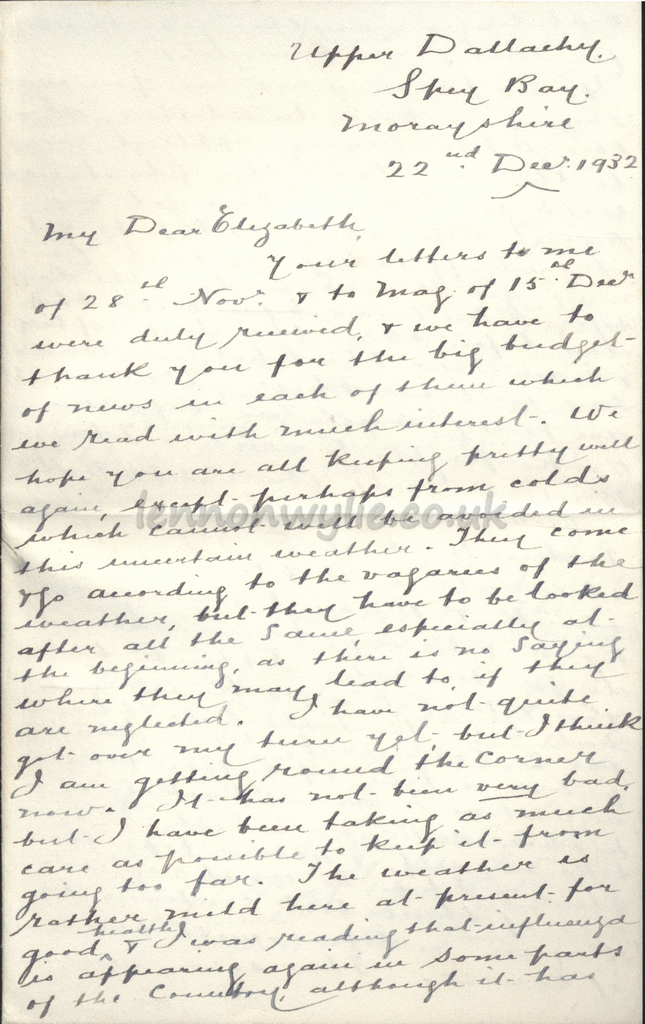 Upper Dallachy.
Spey Bay.
Morayshire
22nd Decr. 1932
My Dear Elizabeth,
Your letters to me
of 28th Novr. & to Mag. of 15th Decr
were duly received, & we have to
thank you for the big budget
of news in each of them which
we read with much interest. We
hope you are all keeping pretty well
again, except perhaps from colds
which cannot well be avoided in
this uncertain weather. They come
& go according to the vagaries of the
weather, but they have to be looked
after all the same, especially at
the beginning, as there is no saying
where they may lead to, if they
are neglected. I have not quite
got over my turn yet, but I think
I am getting round the corner
now. It has not been very bad,
but I have been taking as much
care as possible to keep it from
going too far. The weather is
rather mild here at present for
good health, & I was reading that influenza
is appearing again in some parts
of the Country, although it has
lennonwylie.co.uk